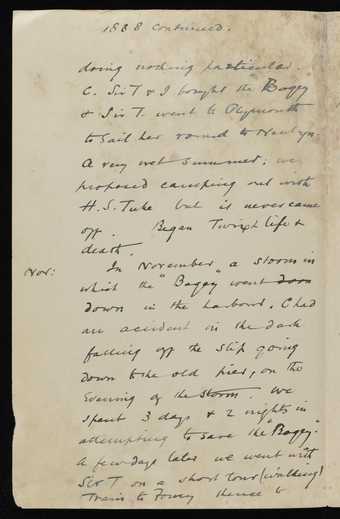 1888 continued.
doing nothing particular.
C. Sir T & I bought the Bogey
& Sir T. went to Plymouth
to sail her round to Newlyn.
A very wet summer: we
proposed camping out with
H. S. Tuke but it never came
off. Began Twixt life &
death.
Nov: In November, a storm in
which the "Bogey" went down
down in the harbour. C had
an accident in the dark
falling off the slip going
down to the old pier, on the
evening of the storm. We
spent 3 days & 2 nights in
attempting to save the "Bogey".
A few days later we went with
S & T on a short tour (walking)
Train to Fowey thence to